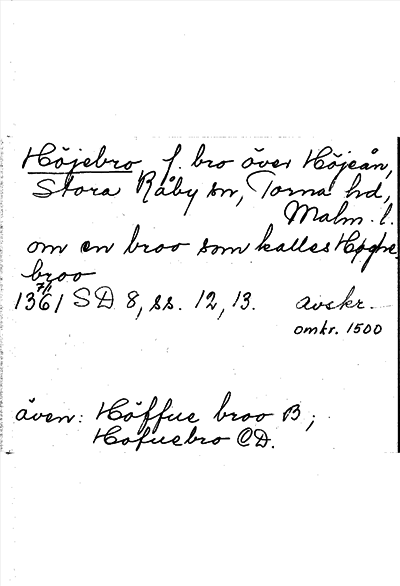 Höjebro, f. bro över Höjeån,
Stora Råby sn, Torna hd,
Malm. l.
om en broo som kalles
broo
7/1
1361 SD 8, ss. 12, 13. avskr.
omkr. 1500
även: Höffue broo B;
Hofuebro CD.